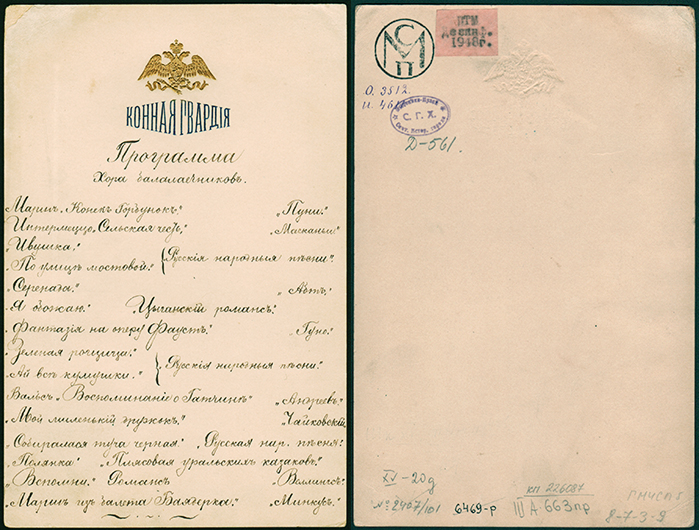 КОННАЯ ГВАРДІЯ
Программа
Хора балалаечниковъ.
Маршъ „Конекъ Горбунокъ.“ „Пуни.“
Интермеццо „Сельская честь.“ „Масканьи.“
„Ивушка.“
„По улицѣ мостовой.“ Русскія народныя пѣсни.“
„Серенада.“ „Абтъ.“
„Я обожаю.“ Цыганскій романсъ.“
„Фантазія на оперу Фаустъ.“ „Гуно.“
„Зеленая рощица.“
„Ай всѣ кумушки.“ Русскія народныя пѣсни.“
Вальсъ „Воспоминаніе о Гатчинѣ“ „Андреевъ.“
„Мой миленькій дружокъ.“ „Чайковскій
„Собиралася туча черная.“ „Русская нар. пѣсня.“
„Полянка“ „Плясовая уральскихъ казаковъ.“
„Вспомни.“ Романсъ
„Маршъ изъ балета Баядерка.“ „Минкусъ.“
С М П
ПТМ
дезинф.
1948г.
О. 3512.
С. Г. К.
Д-561.
XV-20д
№ 2407/101
6469-р
КП 226087
III А 663пр
ГНЧСП 5
8-7-3-9